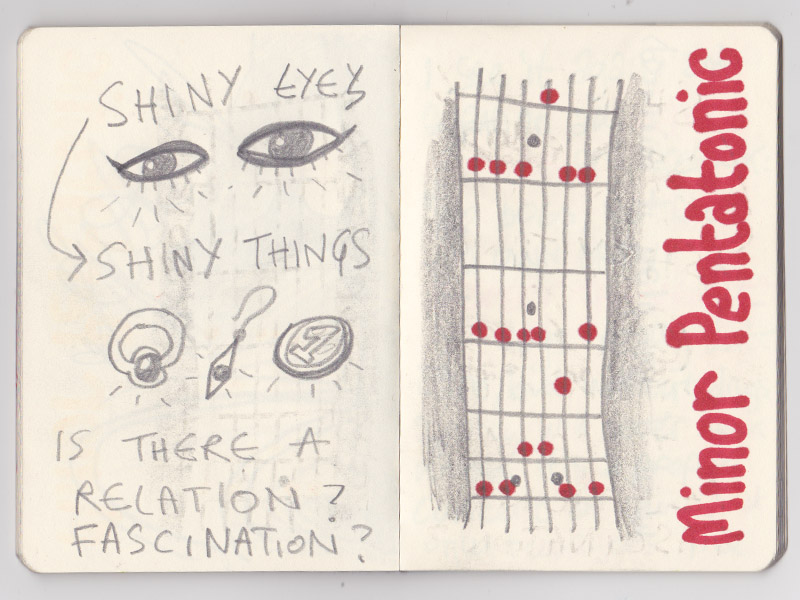 SHINY EYES
SHINY THINGS
IS THERE A
RELATION?
FASCINATION?
Minor Pentatonic